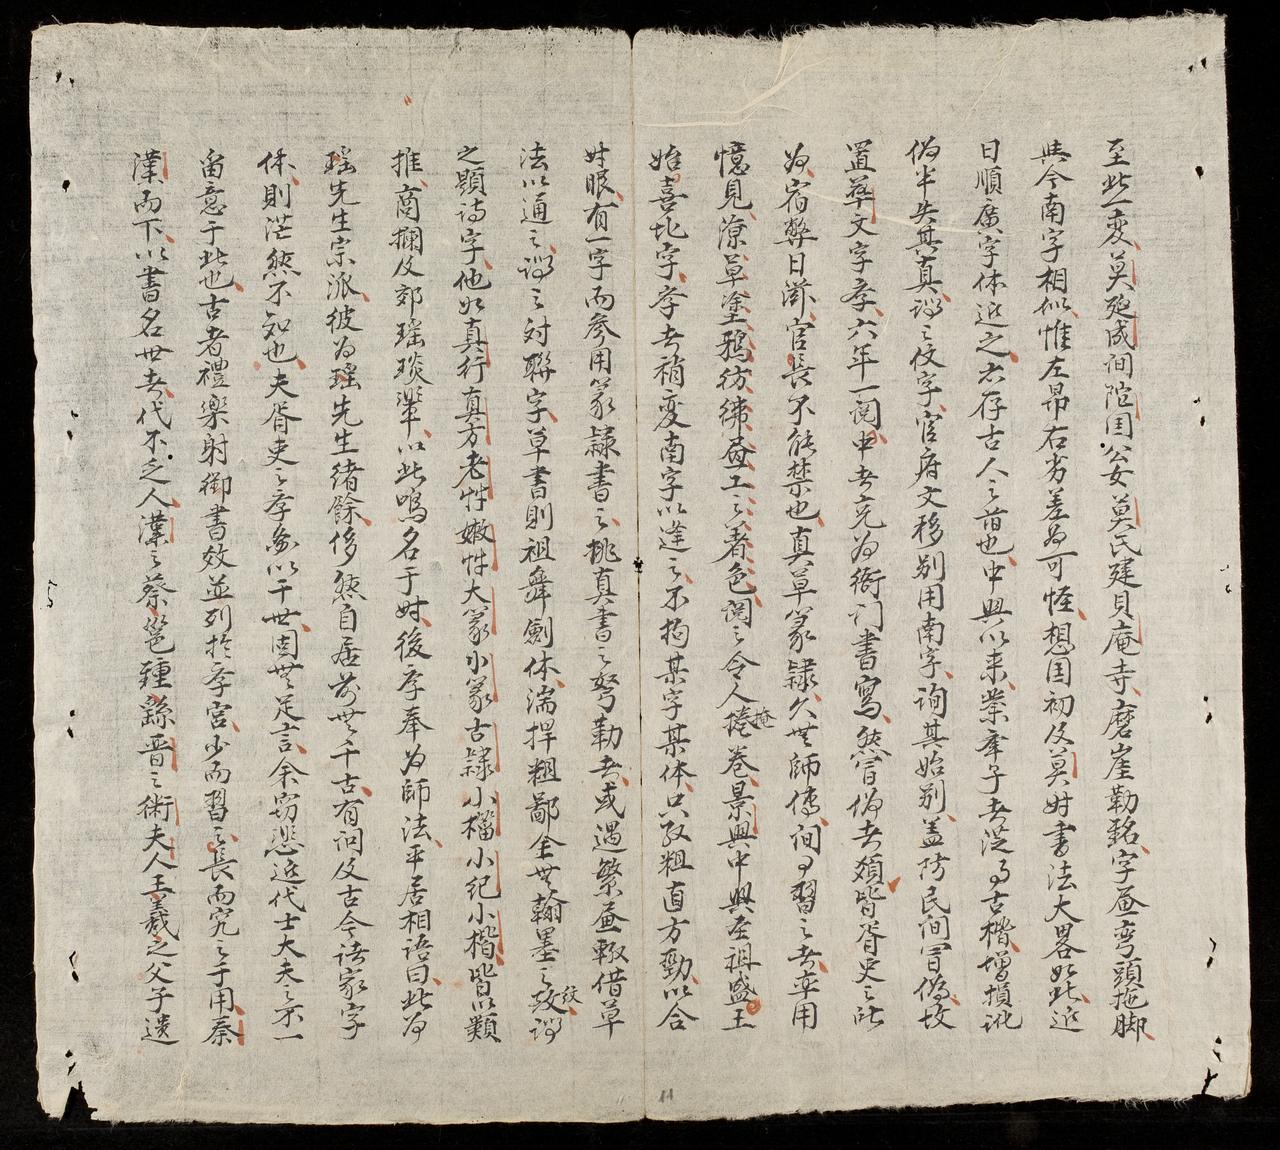 至此一变莫延成間陀国公女莫氏建貝庵寺磨崖勒銘字画弯頭拖脚
與今南字相似惟左昂右劣差為可怪想国初及莫时書法大畧如此近
日順廣字体近之亦存古人之旧也中興以来業舉子者涗古楷增損訛
偽半失其真謂之伩字官府文移别用南字詢其始别盖防民間冒偽故
置華文字学六年一閲中者充為衙门書寫然冒偽者頗皆胥吏之所
為宿弊日滋官長不能禁也真草篆隸久無師傳間习之者卒用
憶見潦草塗鴉彷彿畫工之著色閱之令人掩卷景興中興圣祖盛王
始喜北字学者稍变南字以逢之不拘某字某体只取粗直方勁以合
时眼有一字而参用篆隸書之挑真書之弩勒者或遇繁画輙借草
法以通之謂之対聯字草書則祖舞劍体湍捍粗鄙全無翰墨之致謂
之顕诗字他如真行真方老性嫩性大篆小篆古隸小楷小纪小楷皆以類
推商攔及郊瑶琰輩以此鳴名于时後学奉為師法平居相語曰此為
瑶先生宗派彼為瑶先生绪餘侈然自居前無千古有詞及古今诸家字
体則茫然不知也夫胥吏之学務以干世固無足言余窃悲近代士大夫之不一
留意于此也古者禮樂射御書数並列於学宮少而習之長而究之于用秦
漢而下以書名世者代不乏人漢之蔡邕鍾繇晋之衛夫人王羲之父子遗